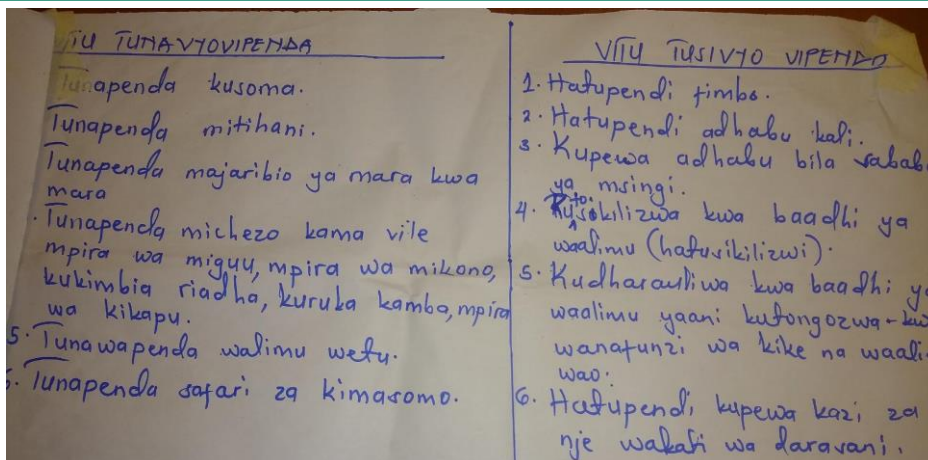 VITU TUNAVYOVIPENDA
Tunapenda kusoma.
Tunapenda mitihani.
Tunapenda majaribio ya mara kwa
mara
Tunapenda michezo kama vile
mpira wa miguu, mpira wa mikono,
kukimbia riadha, kuruka kamba, mpira
wa kikapu.
5. Tunawapenda walimu wetu.
6. Tunapenda safari za kimasomo.
VITU TUSIVYO VIPENDA
1. Hatupendi fimbo.
2. Hatupendi adhabu kali.
3. Kupewa adhabu bila sabab
ya msingi.
4. Kutosikilizwa kwa baadhi ya
waalimu (hatusikilizwi).
5. Kudharauliwa kwa baadhi ya
waalimu yaani kutongozwa - kw
wanafunzi wa kike na waali
wao.
6. Hatupendi kupewa kazi za
nje wakati wa darasani.